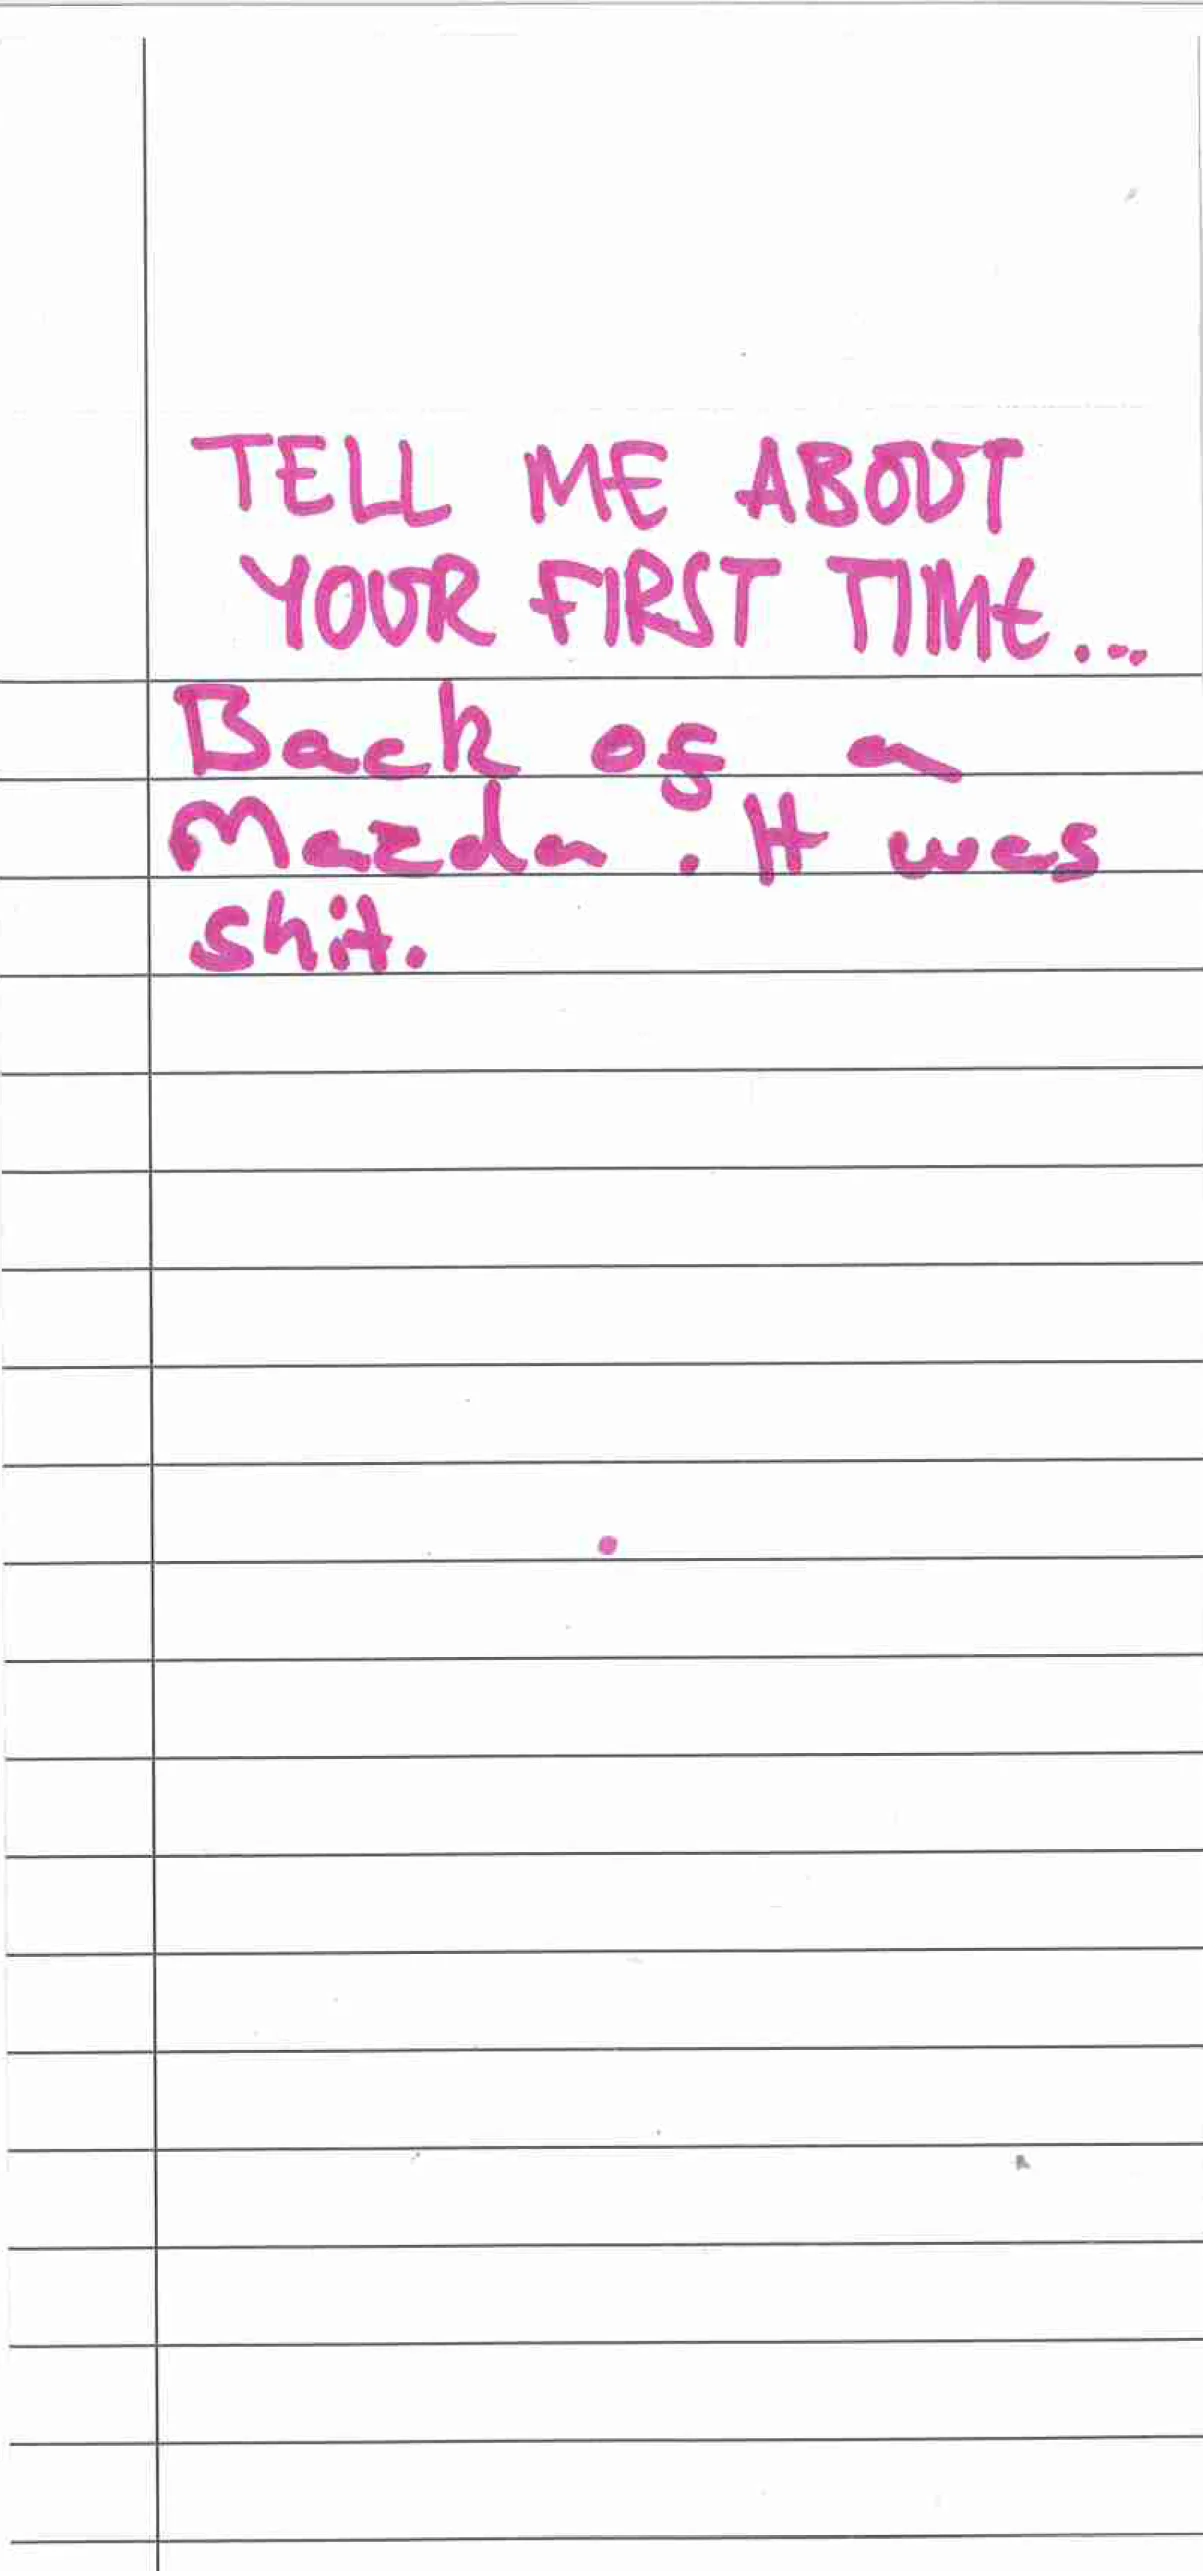 TELL ME ABOUT
YOUR FIRST TIME...
Back of a
Mazda. It was
shit.